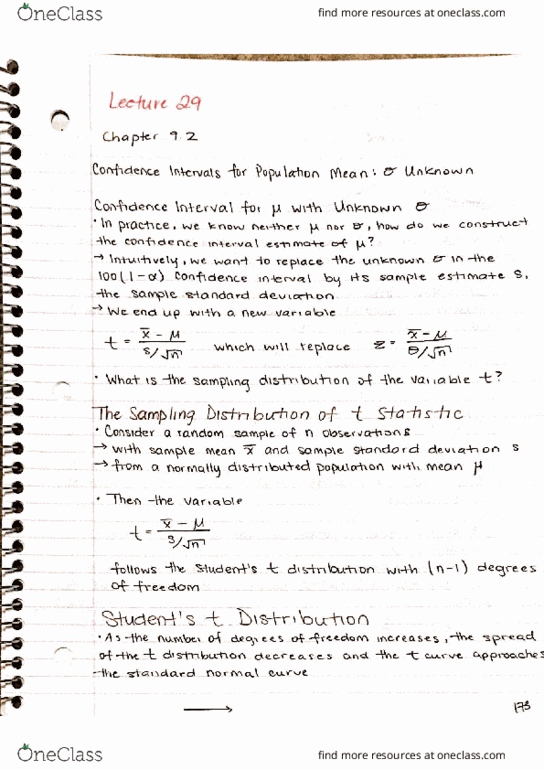 OneClass find more resources at oneclass.com
Lecture 29
Chapter 9.2
Confidence Intervals for Population Mean: σ Unknown
Confidence Interval for μ with Unknown σ
• In practice, we know neither μ nor σ, how do we construct
the confidence interval estimate of μ?
→ Intuitively, we want to replace the unknown σ in the
100(1-α) confidence interval by its sample estimate s,
the sample standard deviation
→ We end up with a new variable
t = x̄ - μ / s/√n which will replace z = x̄ - μ / σ/√n
• What is the sampling distribution of the variable t?
The Sampling Distribution of t Statistic
• Consider a random sample of n observations
→ with sample mean x̄ and sample standard deviation s
→ from a normally distributed population with mean μ
• Then the variable
t = x̄ - μ / s/√n
follows the student's t distribution with (n-1) degrees
of freedom
Student's t Distribution
• As the number of degrees of freedom increases, the spread
of the t distribution decreases and the t curve approaches
the standard normal curve
→ 173
OneClass find more resources at oneclass.com